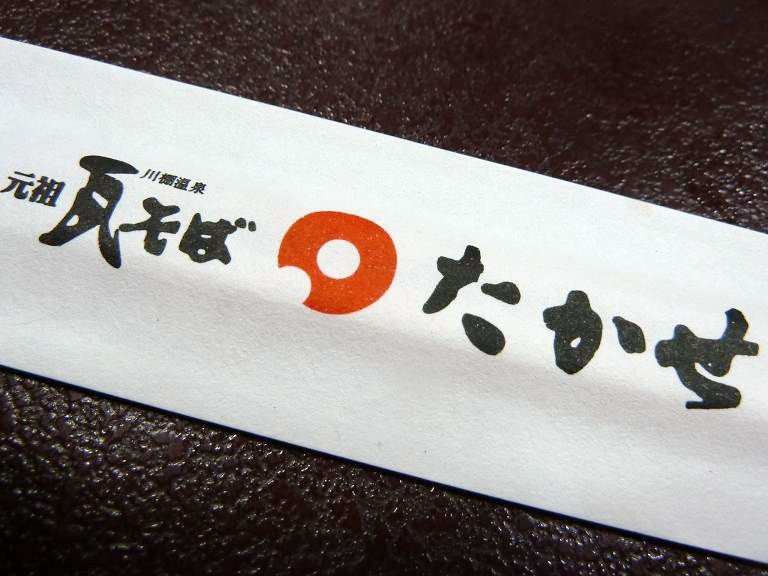 元祖 瓦そば たかせ
川棚温泉